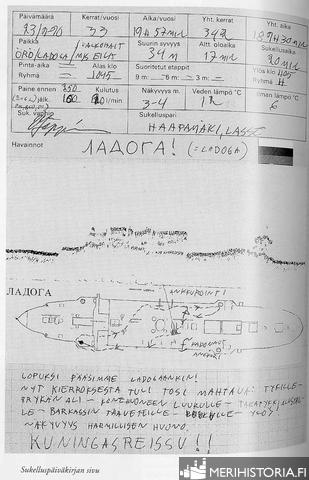 Päivämäärä Kerrat/vuosi Aika/vuosi Yht. kerrat Yht. aika
33 19 H 57 min 342
Paikka Suurin syvyys Att. oloaika Sukellusaika
ÖRÖ/LADOGA 34 m 17 min
Pinta-aika Alas klo Suoritetut etapit Ylös klo
Ryhmä 1045 9 m: 6 m: 3 m: Ryhmä H
Paine ennen Kulutus Näkyvyys m. Veden lämpö °C Ilman lämpö °C
3-4 12 6
Sukelluspari
HAAPAMÄKI, LASSE
Havainnot ЛАДОГА! (=LADOGA)
ЛАДОГА
ANKKUROINTI
PUDONNUT
ANKKURI
LOPUKSI PÄÄSIMME LADOGAANKIN!
NYT KIERROKSESTA TULI TOSI MAHTAVA: TYKILLE-
KONEHUONEEN LUUKULLE-
LE- BARKASSIN TAAVETEILLE- YLÖS!
NÄKYVYYS HARMILLISEN HUONO.
KUNINGASREISSU!!
Sukelluspäiväkirjan sivu
MERIHISTORIA.FI